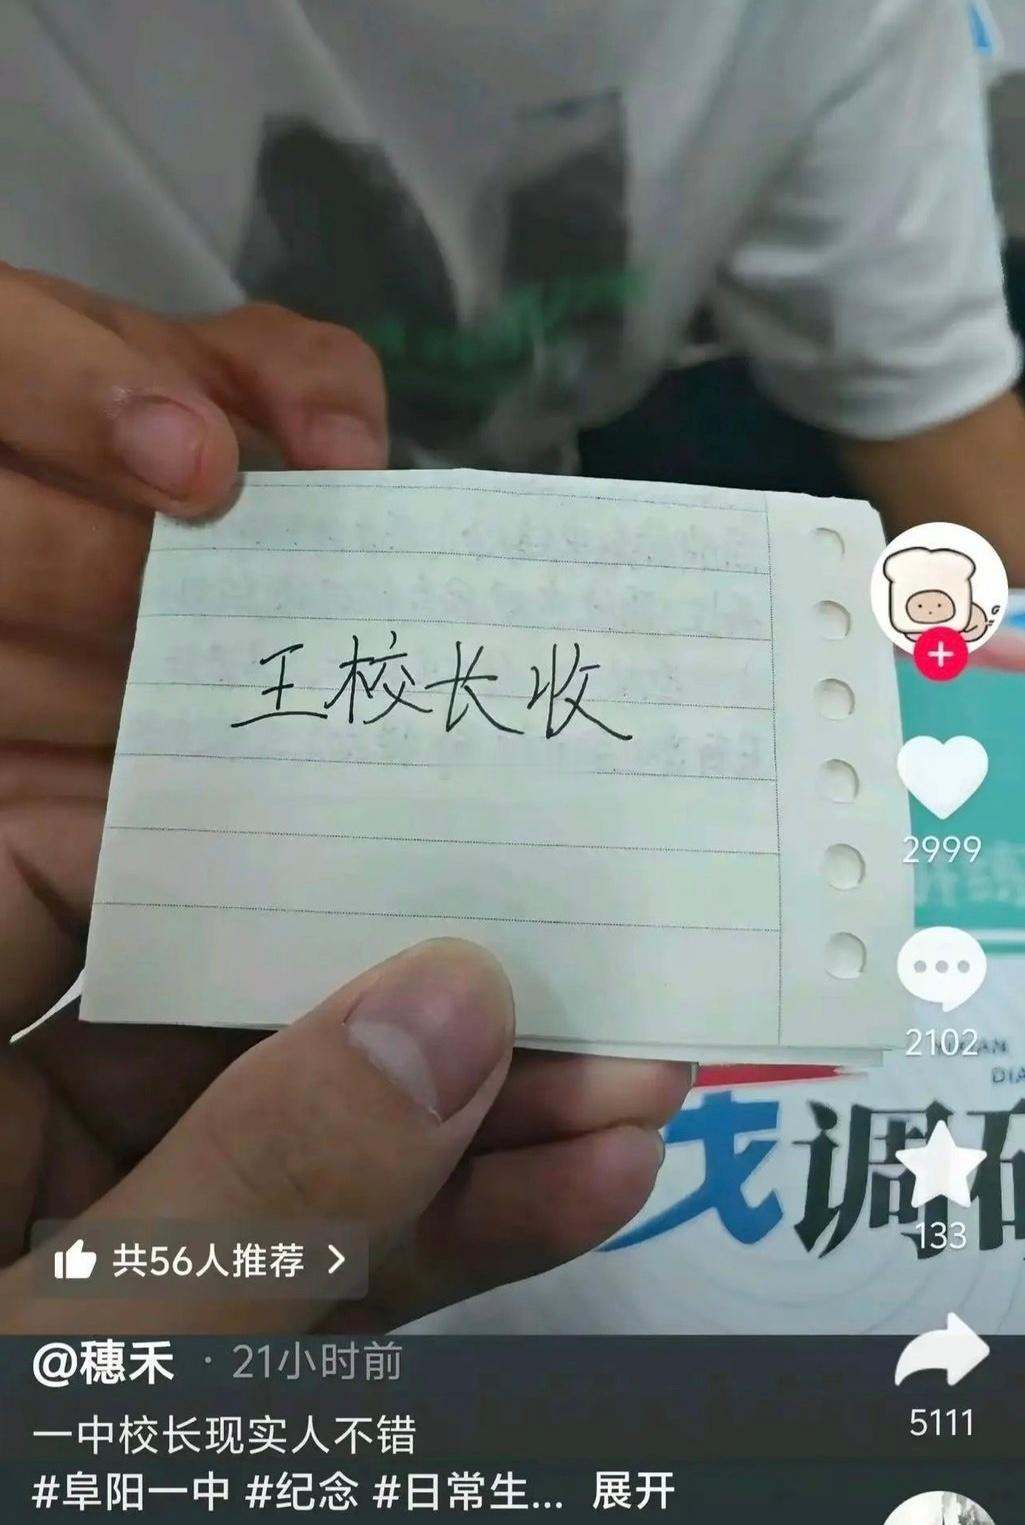 王校长收
2999
2102
DIA
调研
133
共56人推荐
@穗禾 · 21小时前
5111
一中校长现实人不错
#阜阳一中 #纪念 #日常生... 展开